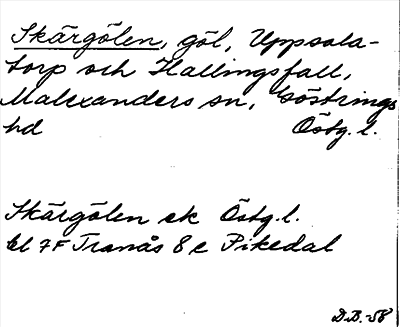 Skärgölen, göl, Uppsala-
torp och Hallingsfall,
Malexanders sn, Göstrings
hd Östg. l.
Skärgölen ek Östg. l.
bl 7F Tranås 8 e Pikedal
D.B. -58